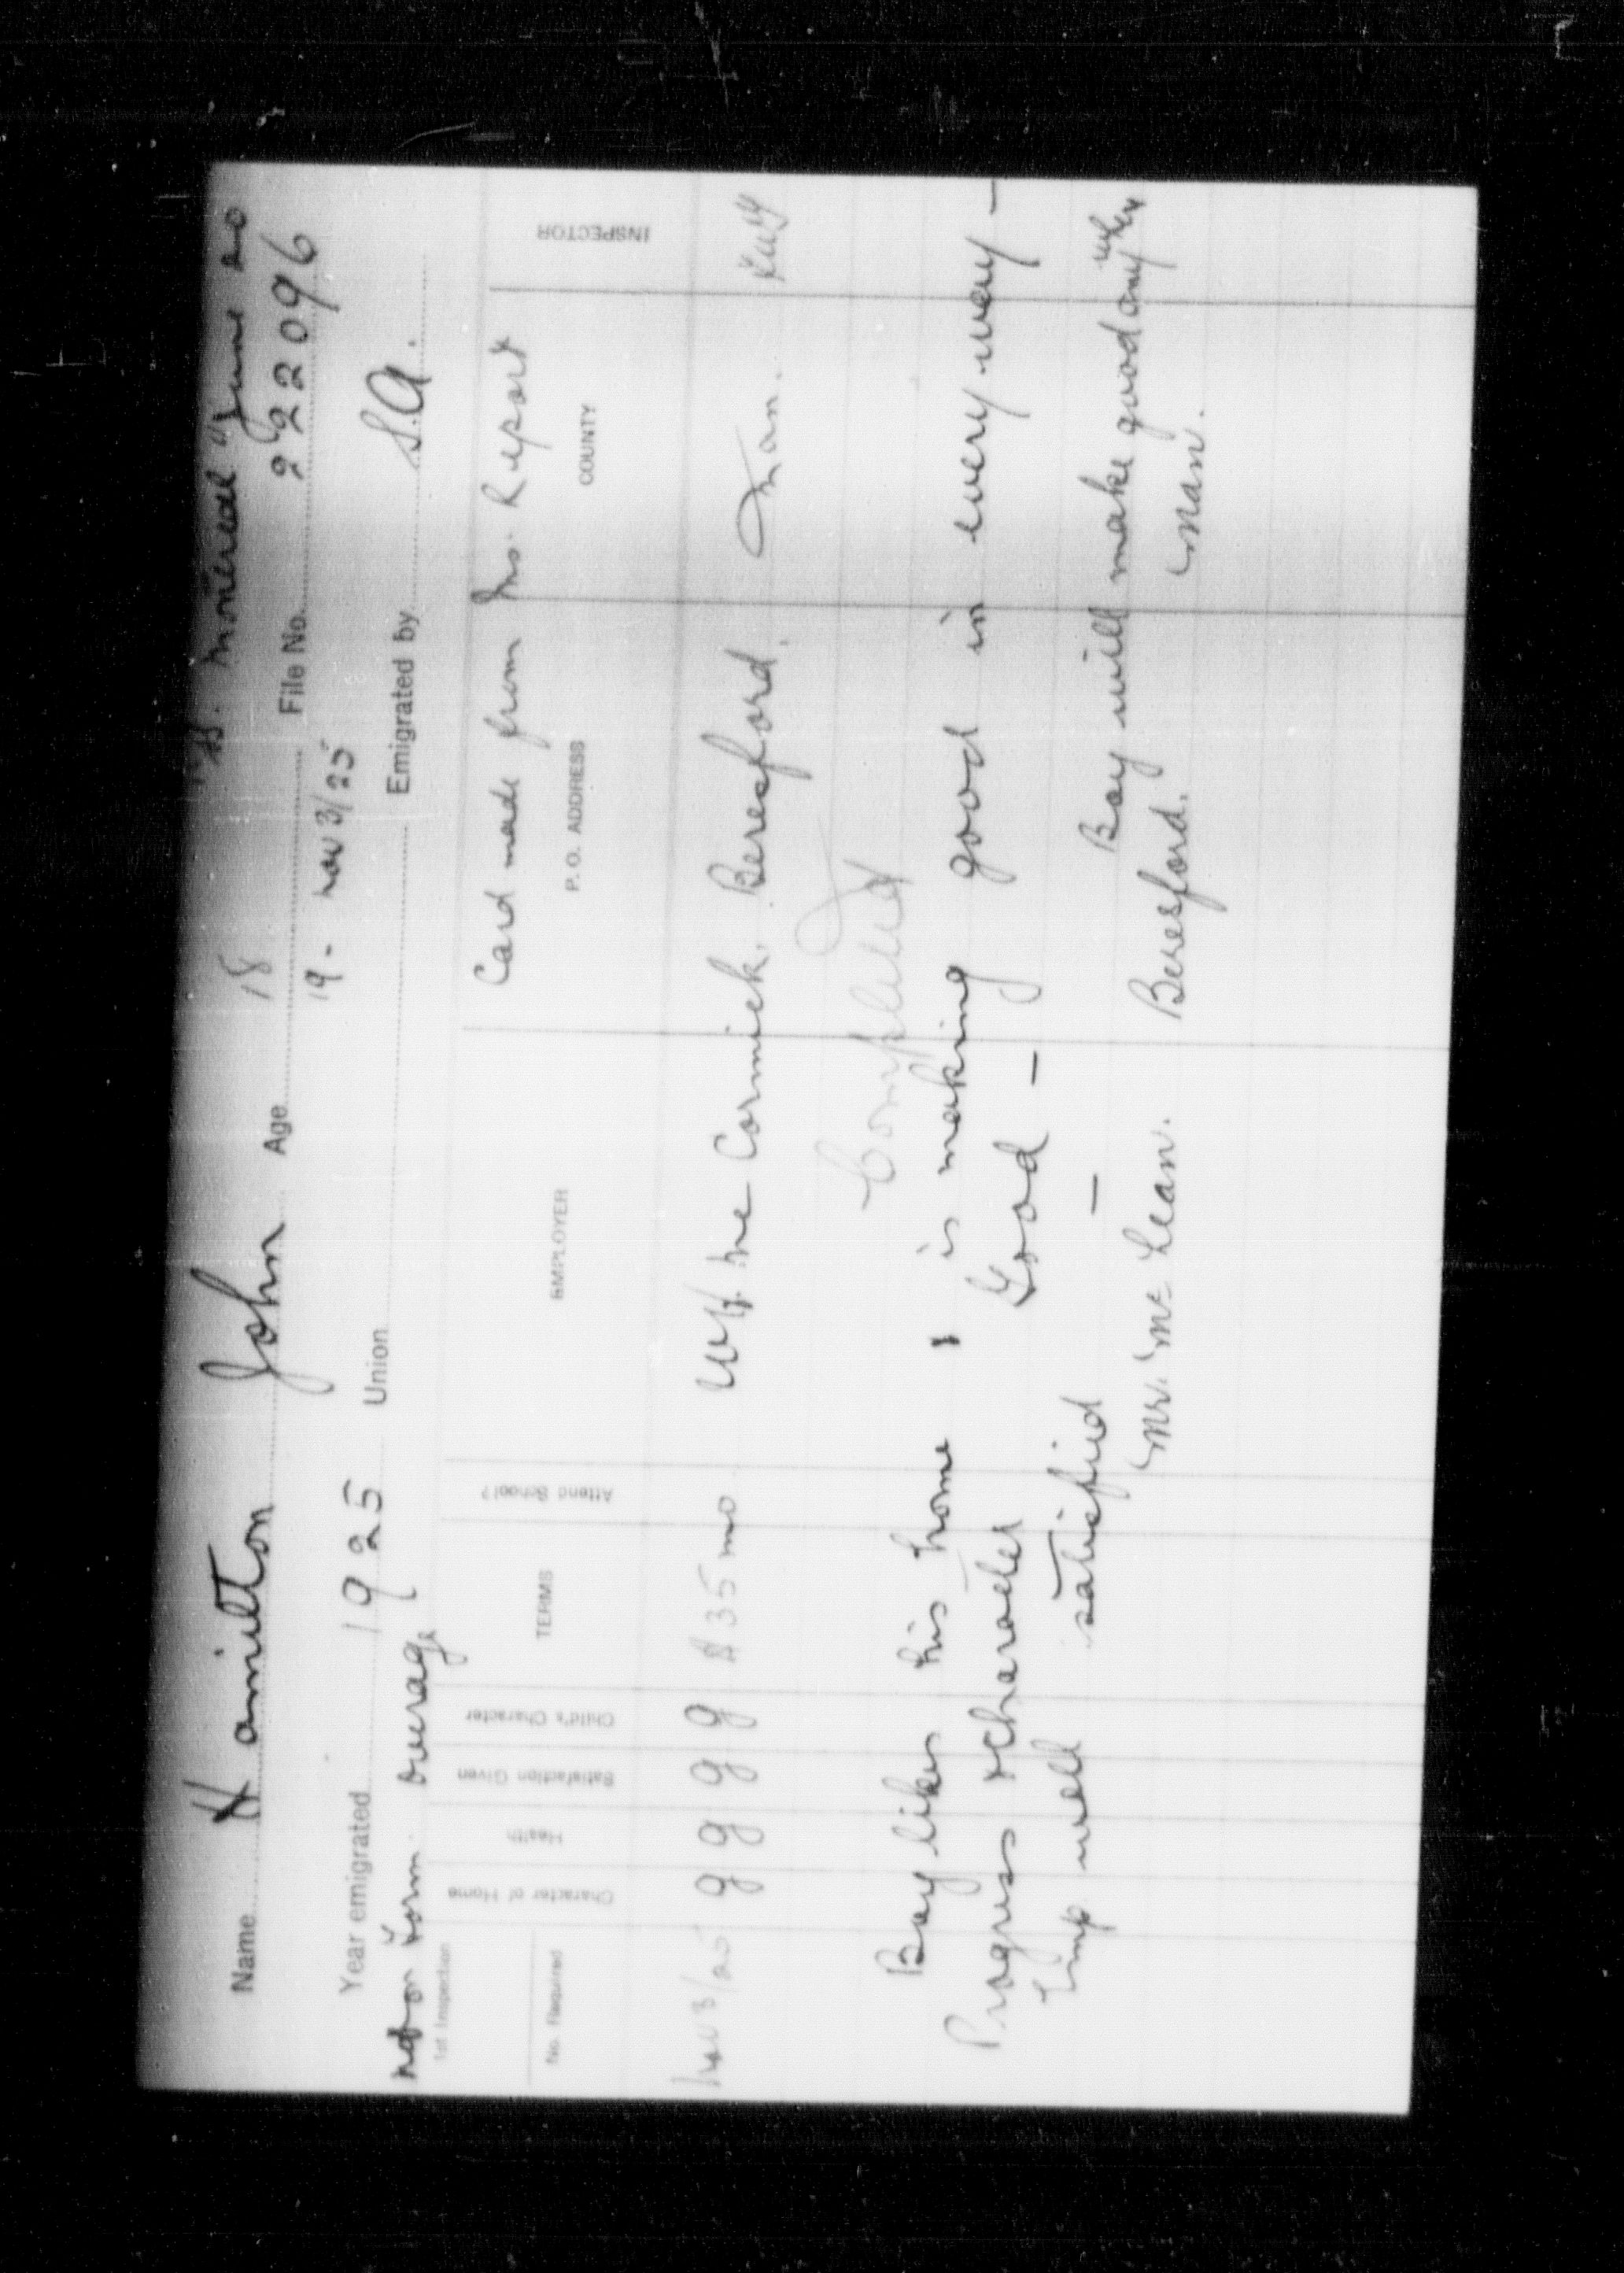 "Montreal" June 20
Name Hamilton John Age 18 File No. 222096
19 - Nov 3/25
Year emigrated 1925 Union Emigrated by S.A.
not on Form. overage
1st Inspection
Card made from Ins. Report
No. Required Character of Home Health Satisfaction Given Child's Character TERMS Attend School? EMPLOYER P. O. ADDRESS COUNTY INSPECTOR
Nov 3/25 g g g g $35 mo. Mc Cormick. Beresford. Man.
Completed
Boy likes his home & is making good in every way —
Progress & Character Good —
Emp well satisfied —
Boy will make good any where
Mr. McLean. Beresford. Man.